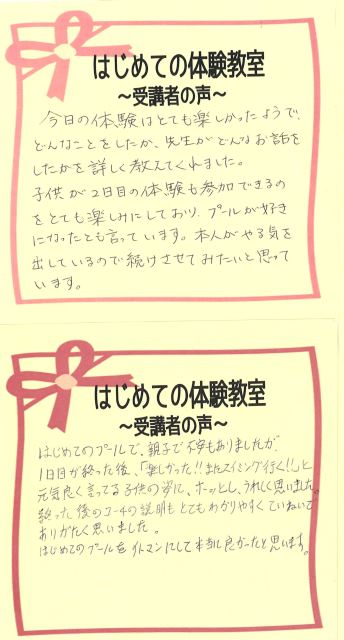 はじめての体験教室
～受講者の声～
今日の体験はとても楽しかったようで、
どんなことをしたか、先生がどんなお話を
したかを詳しく教えてくれました。
子供が2日目の体験も参加できるの
をとても楽しみにしており、プールが好き
になったとも言っています。本人がやる気を
出しているので続けさせてみたいと思って
います。
はじめての体験教室
～受講者の声～
はじめてのプールで、親子で不安もありましたが、
1日目が終った後、「楽しかった!!またスイミング行く!!」と
元気良く言ってる子供の姿に、ホッとし、うれしく思いました。
終った後のコーチの説明もとてもわかりやすくていねいで
ありがたく思いました。
はじめてのプールをイトマンにして本当に良かったと思います。